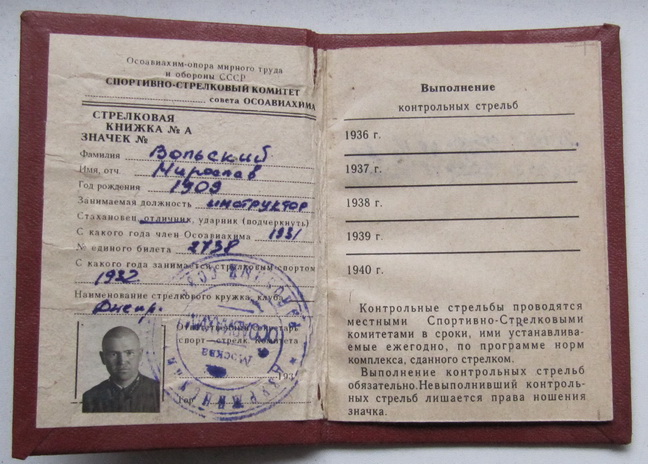 Осоавиахим-опора мирного труда
и обороны СССР
СПОРТИВНО-СТРЕЛКОВЫЙ КОМИТЕТ
совета ОСОАВИАХИМА
СТРЕЛКОВАЯ
КНИЖКА № А
ЗНАЧЕК №
Фамилия Вольский
Имя, отч. Мирослав
Год рождения 1909
Занимаемая должность инструктор
Стахановец, отличник, ударник (подчеркнуть)
С какого года член Осоавиахима 1931
№ единого билета 2738
С какого года занимается стрелковым спортом
1932
Наименование стрелкового кружка, клуба
Днепр.
Ответственный секретарь
спорт—стрелк. комитета
Москва
193
Выполнение
контрольных стрельб
1936 г.
1937 г.
1938 г.
1939 г.
1940 г.
Контрольные стрельбы проводятся
местными Спортивно-Стрелковыми
комитетами в сроки, ими устанавлива-
емые ежегодно, по программе норм
комплекса, сданного стрелком.
Выполнение контрольных стрельб
обязательно.Невыполнивший контроль-
ных стрельб лишается права ношения
значка.